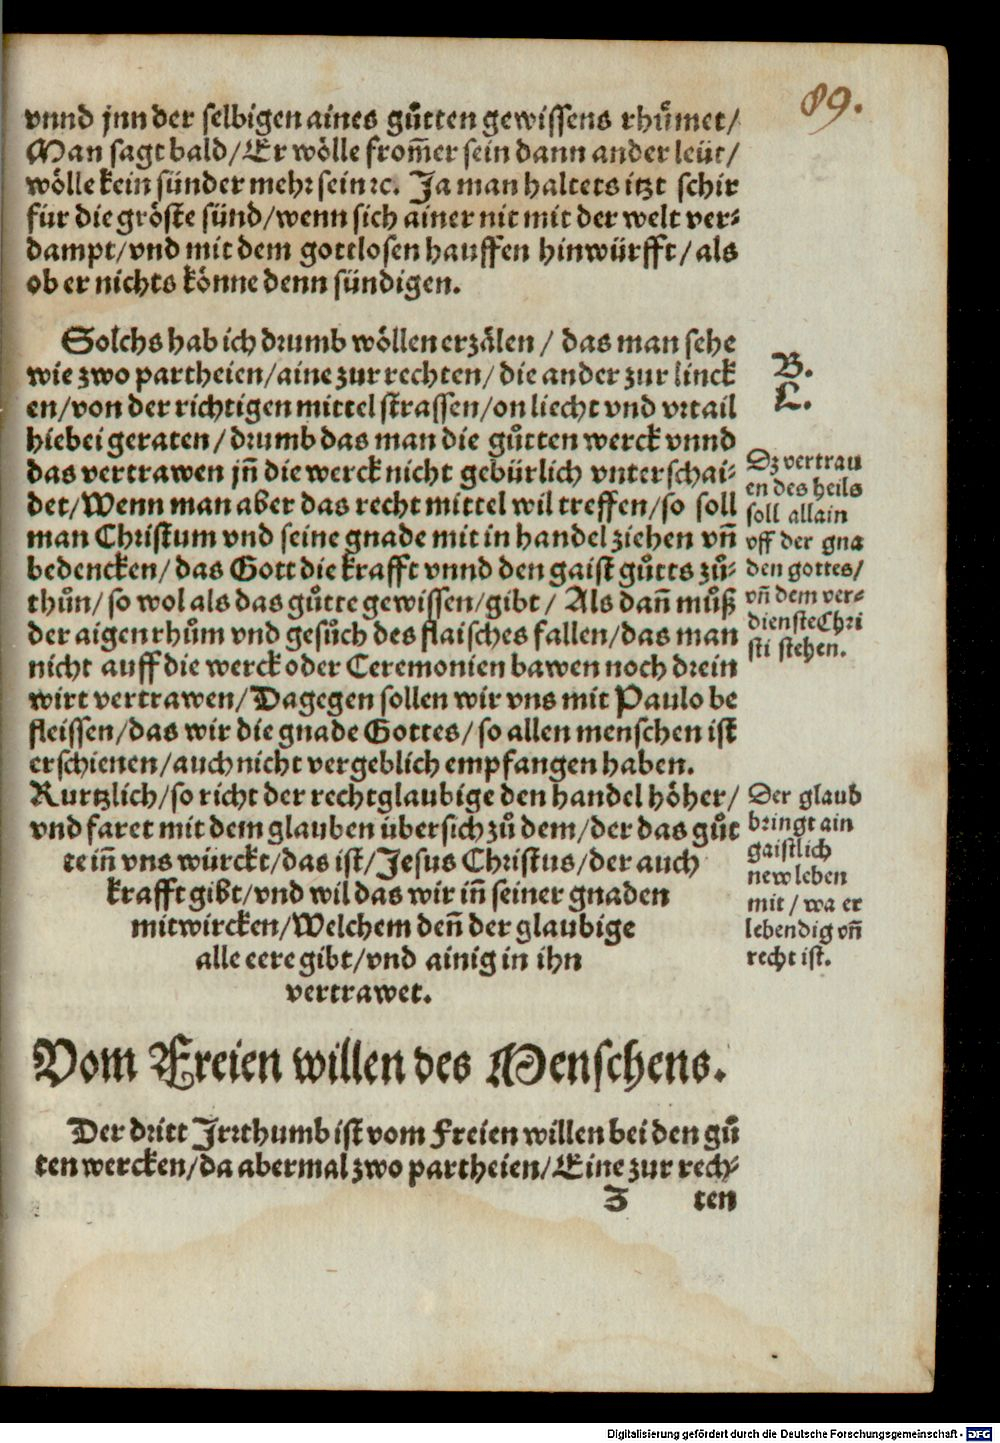 89.
vnnd jnn der selbigen aines gůtten gewissens rhůmet/
Man sagt bald/Er wölle from̃er sein dann ander leüt/
wölle kein sünder mehr sein ꝛc. Ja man haltets itzt schir
für die gröste sünd/wenn sich ainer nit mit der welt ver⸗
dampt/vnd mit dem gottlosen hauffen hinwürfft/als
ob er nichts könne denn sündigen.
Solchs hab ich drumb wöllen erzälen/ das man sehe
wie zwo partheien/aine zur rechten/ die ander zur linck
en/von der richtigen mittel strassen/on liecht vnd vrtail
hiebei geraten/drumb das man die gůtten werck vnnd
das vertrawen jñ die werck nicht gebürlich vnterschai⸗
det/Wenn man aber das recht mittel wil treffen/so soll
man Christum vnd seine gnade mit in handel ziehen vñ
bedencken/das Gott die krafft vnnd den gaist gůtts zů⸗
thůn/so wol als das gůtte gewissen/gibt/ Als dañ můß
der aigen rhům vnd gesůch des flaisches fallen/das man
nicht auff die werck oder Ceremonien bawen noch drein
wirt vertrawen/Dagegen sollen wir vns mit Paulo be
fleissen/das wir die gnade Gottes/so allen menschen ist
erschienen/auch nicht vergeblich empfangen haben.
Kurtzlich/so richt der rechtglaubige den handel höher/
vnd faret mit dem glauben übersich zů dem/der das gůt
te iñ vns würckt/das ist/Jesus Christus/der auch
krafft gibt/vnd wil das wir iñ seiner gnaden
mitwircken/Welchem deñ der glaubige
alle eere gibt/vnd ainig in ihn
vertrawet.
B.
L.
Dz vertrau
en des heils
soll allain
vff der gna
den gottes/
vñ dem ver⸗
dienste Chri
sti stehen.
Der glaub
bringt ain
gaistlich
new leben
mit/ wa er
lebendig vñ
recht ist.
Vom Freien willen des Menschens.
Der dritt Jrrthumb ist vom Freien willen bei den gů
ten wercken/da abermal zwo partheien/Eine zur rech⸗
Z ten
Digitalisierung gefördert durch die Deutsche Forschungsgemeinschaft - DFG